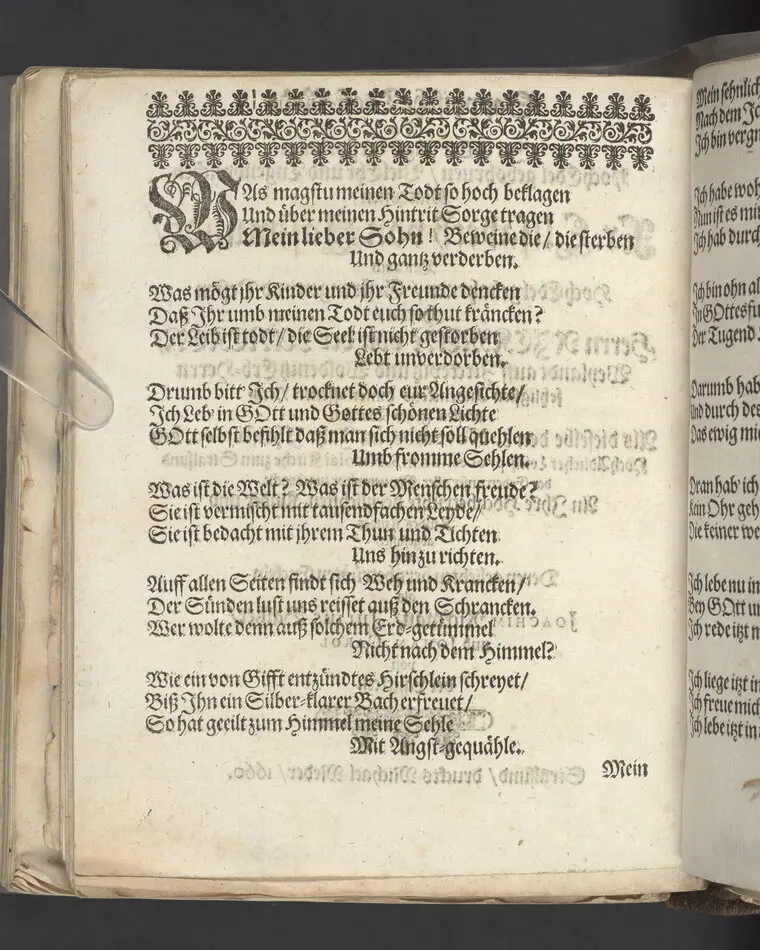 WAs magstu meinen Todt so hoch beklagen
Und über meinen Hintrit Sorge tragen
Mein lieber Sohn! Beweine die/ die sterben
Und gantz verderben.
Was mögt jhr Kinder und jhr Freunde dencken
Daß Jhr umb meinen Todt euch so thut kräncken?
Der Leib ist todt/ die Seel ist nicht gestorben
Lebt unverdorben.
Drumb bitt' Jch/ trocknet doch eur Angesichte/
Jch Leb' in GOtt und Gottes schönen Lichte
GOtt selbst befihlt daß man sich nicht soll quehlen
Umb fromme Sehlen.
Was ist die Welt? Was ist der Menschen freude?
Sie ist vermischt mit tausendfachen Leyde/
Sie ist bedacht mit jhrem Thun und Tichten
Uns hin zu richten.
Auff allen Seiten findt sich Weh und Krancken/
Der Sünden lust uns reisset auß den Schrancken.
Wer wolte denn auß solchem Erd-getümmel
Nicht nach dem Himmel?
Wie ein von Gifft entzündtes Hirschlein schreyet/
Biß Jhn ein Silber-klarer Bach erfreuet/
So hat geeilt zum Himmel meine Sehle
Mit Angst-gequähle.
Mein
Mein sehnlich
Nach dem Jc
Jch bin vergn
Jch habe woh
Nun ist es mir
Jch hab durch
Jch bin ohn al
Jn GOttes fu
Der Tugend
Darumb hab
Und durch des
Das ewig mi
Dran hab' ich
Kein Ohr geh
Die keiner we
Jch lebe nu in
Bey GOtt un
Jch rede itzt m
Jch liege itzt in
Jch freue mich
Jch lebe itzt in